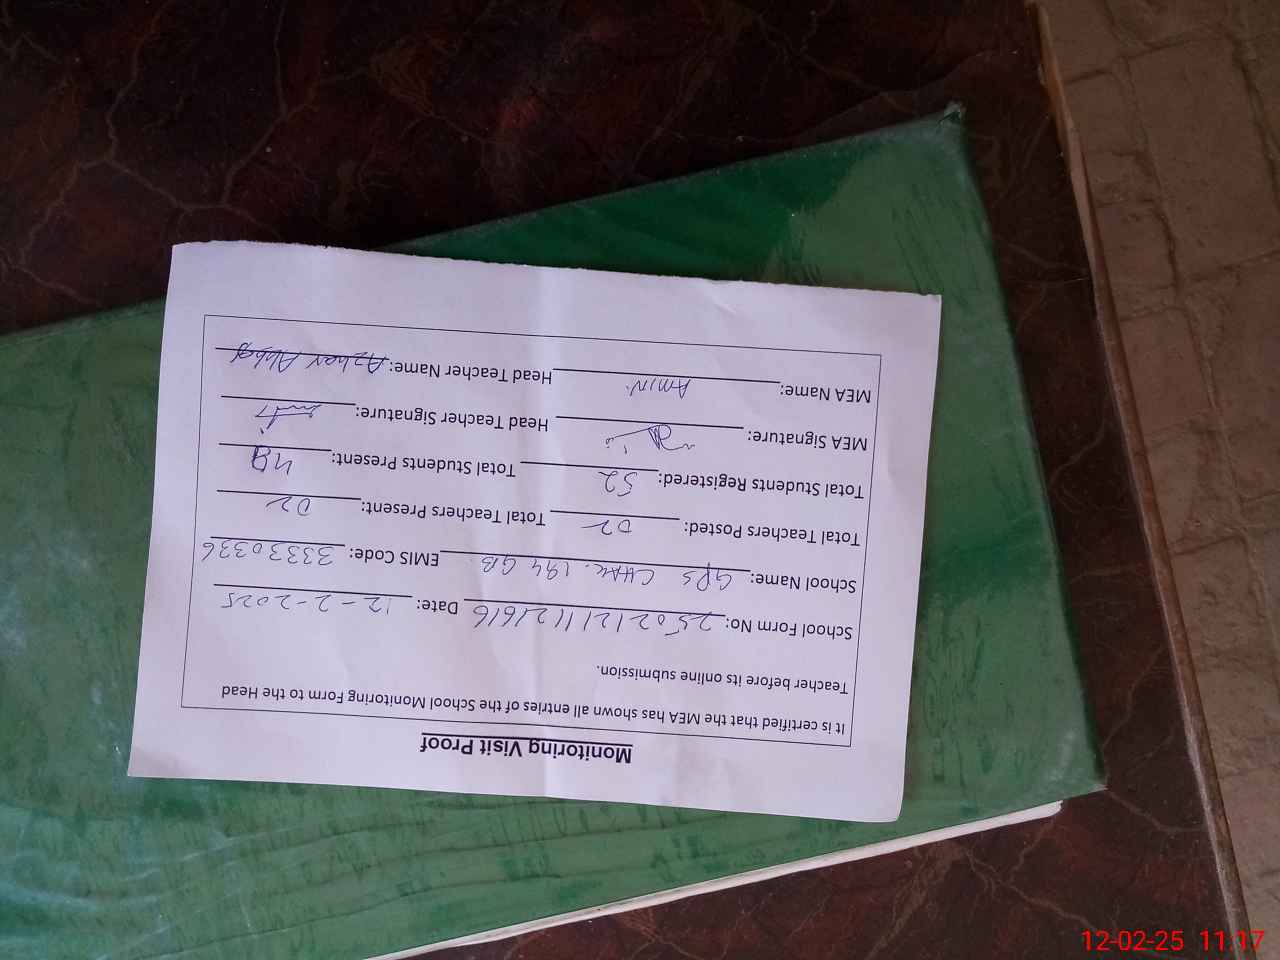 Monitoring Visit Proof
It is certified that the MEA has shown all entries of the School Monitoring Form to the Head
Teacher before its online submission.
School Form No: 250212111121616 Date: 12-2-2025
School Name: GPS CHAK. 194 GB EMIS Code: 33330336
Total Teachers Posted: 02 Total Teachers Present: 02
Total Students Registered: 52 Total Students Present: 49
MEA Signature: Head Teacher Signature:
MEA Name: AMIN Head Teacher Name: Azhar Abbas
12-02-25 11:17